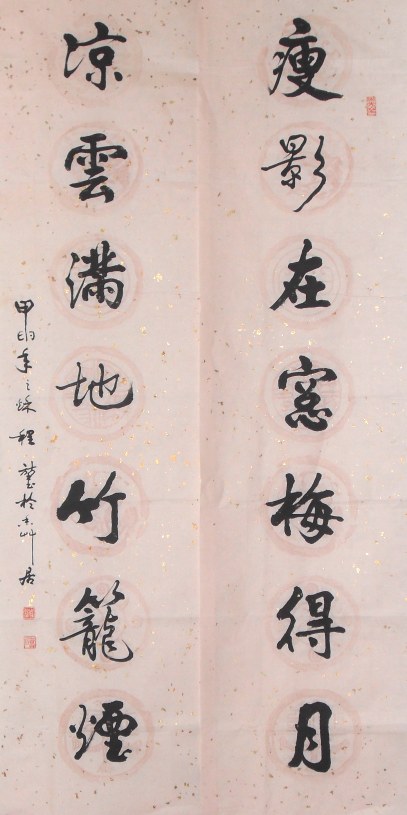 瘦影在窓梅得月
涼雲滿地竹籠煙
甲申年之秌程
於
居